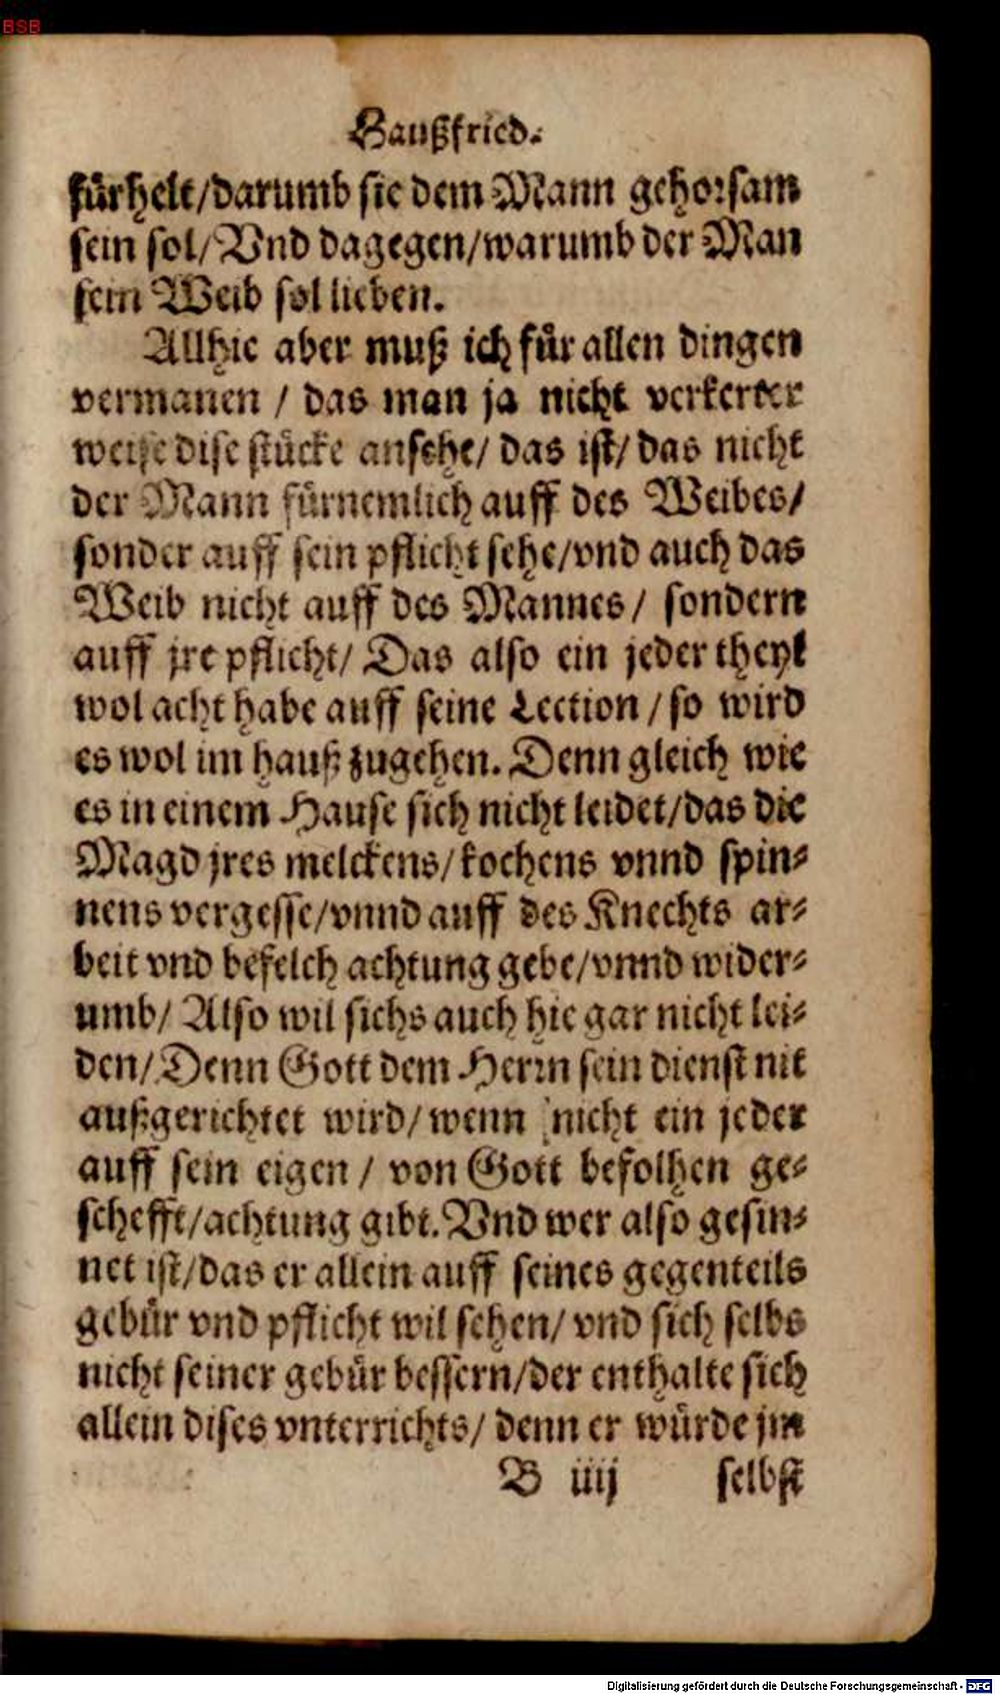 BSB
Haußfried.
fürhelt/darumb sie dem Mann gehorsam
sein sol/Vnd dagegen/warumb der Man
sein Weib sol lieben.
Allhie aber muß ich für allen dingen
vermanen / das man ja nicht verkerter
weise dise stücke ansehe/ das ist/ das nicht
der Mann fürnemlich auff des Weibes/
sonder auff sein pflicht sehe/vnd auch das
Weib nicht auff des Mannes/ sondern
auff jre pflicht/ Das also ein jeder theyl
wol acht habe auff seine Lection / so wird
es wol im hauß zugehen. Denn gleich wie
es in einem Hause sich nicht leidet/das die
Magd jres melckens/kochens vnnd spin-
nens vergesse/vnnd auff des Knechts ar-
beit vnd befelch achtung gebe/vnnd wider-
umb/ Also wil sichs auch hie gar nicht lei-
den/Denn Gott dem Herrn sein dienst nit
außgerichtet wird/wenn nicht ein jeder
auff sein eigen / von Gott befolhen ge-
schefft/achtung gibt. Vnd wer also gesin-
net ist/das er allein auff seines gegenteils
gebür vnd pflicht wil sehen/ vnd sich selbs
nicht seiner gebür bessern/der enthalte sich
allein dises vnterrichts/ denn er würde jm
B iiij selbst
Digitalisierung gefördert durch die Deutsche Forschungsgemeinschaft - DFG